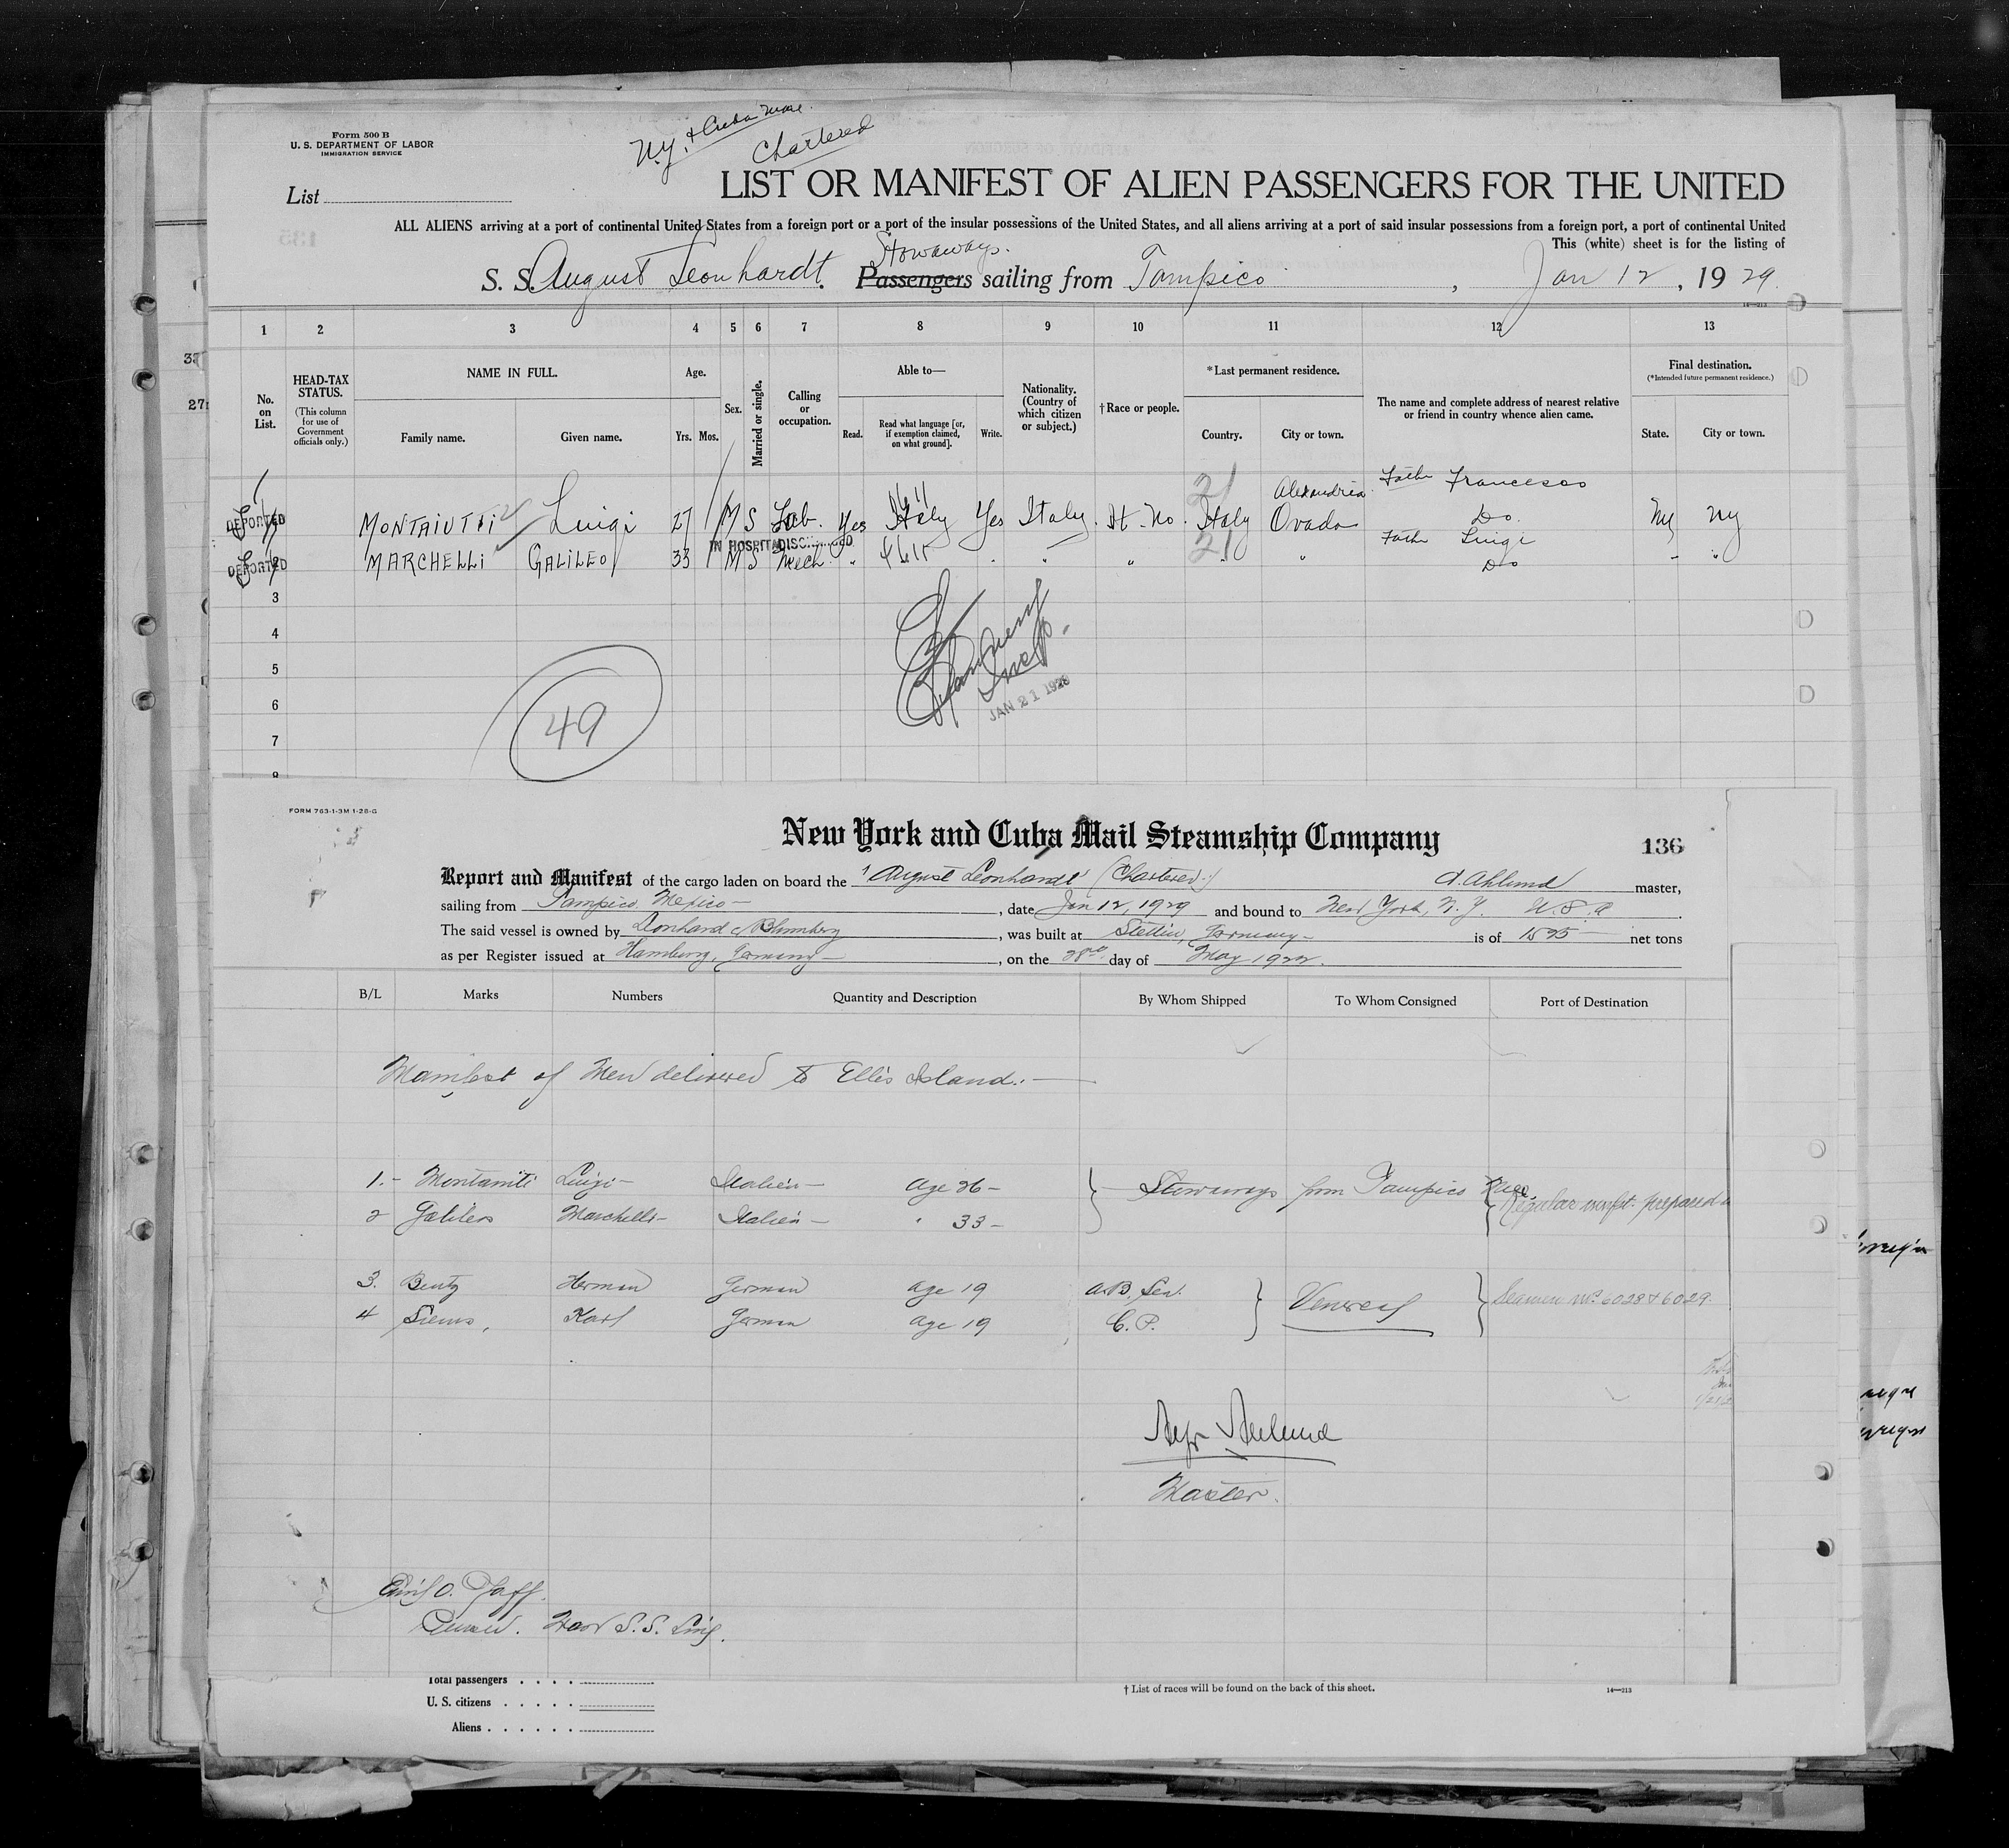 Form 500 B
U. S. DEPARTMENT OF LABOR
IMMIGRATION SERVICE
N.Y. & Cuba Mail
Chartered
List
LIST OR MANIFEST OF ALIEN PASSENGERS FOR THE UNITED
ALL ALIENS arriving at a port of continental United States from a foreign port or a port of the insular possessions of the United States, and all aliens arriving at a port of said insular possessions from a foreign port, a port of continental United
This (white) sheet is for the listing of
Stowaways.
S. S. August Leonhardt. Passengers sailing from Tampico, Jan 12, 1929.
14—213
1 2 3 4 5 6 7 8 9 10 11 12 13
No. on List.
HEAD-TAX STATUS. (This column for use of Government officials only.)
NAME IN FULL.
Family name. Given name.
Age.
Yrs. Mos.
Sex.
Married or single.
Calling or occupation.
Able to—
Read. Read what language [or, if exemption claimed, on what ground]. Write.
Nationality. (Country of which citizen or subject.)
† Race or people.
* Last permanent residence.
Country. City or town.
The name and complete address of nearest relative or friend in country whence alien came.
Final destination.
(* Intended future permanent residence.)
State. City or town.
21 Alexandria Father Francesco
DEPORTED MONTAIUTTI Luigi 27 M S Lab. Yes Italy Yes Italy. It. No. Italy Ovada Do. NY NY
IN HOSPITAL DISCHARGED 21 Father Luigi
DEPORTED MARCHELLI GALILEO 33 M S Mech. " " " " Do "
3
4
5
6
7
8
Insp.
JAN 21 1929
49
FORM 763-1-3M 1-28-G
New York and Cuba Mail Steamship Company
136
Report and Manifest of the cargo laden on board the "August Leonhardt" (Chartered) A. Ahlund master,
sailing from Tampico, Mexico — , date Jan 12, 1929 and bound to New York, N.Y. U.S.A.
The said vessel is owned by Leonhard & Blumberg , was built at Stettin, Germany — is of 1595 — net tons
as per Register issued at Hamburg, Germany — , on the 28th day of May 1922.
B/L Marks Numbers Quantity and Description By Whom Shipped To Whom Consigned Port of Destination
Manifest of Men delivered to Ellis Island. —
1. - Montaniti Luigi - Italien - Age 26 - } Stowaways from Tampico { Regular manfst. prepared
2 Galileo Marchelli - Italien - " 33 -
3. Bentz Herman German age 19 A.B. Sea. } Venereal } Seamen Nos 6028 & 6029.
4 Siems, Karl German age 19 C.P.
Master.
Emil O. Pfaff.
Ward S.S. Line.
Total passengers
U. S. citizens
Aliens
† List of races will be found on the back of this sheet.
14—213